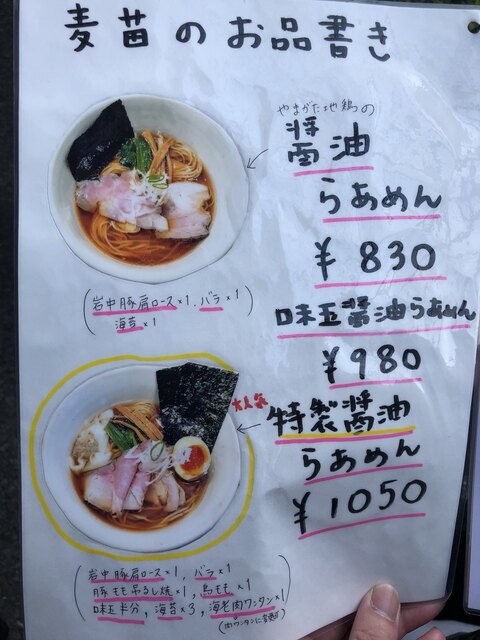 麦苗のお品書き
やまがた地鶏の
醤油
らあめん
¥830
(岩中豚肩ロース×1、バラ×1
海苔×1)
味玉醤油らあめん
¥980
大人気
特製醤油
らあめん
¥1050
(岩中豚肩ロース×1、バラ×1
豚もも吊るし焼×1、鳥もも×1
味玉半分、海苔×3、海老肉ワンタン×1)